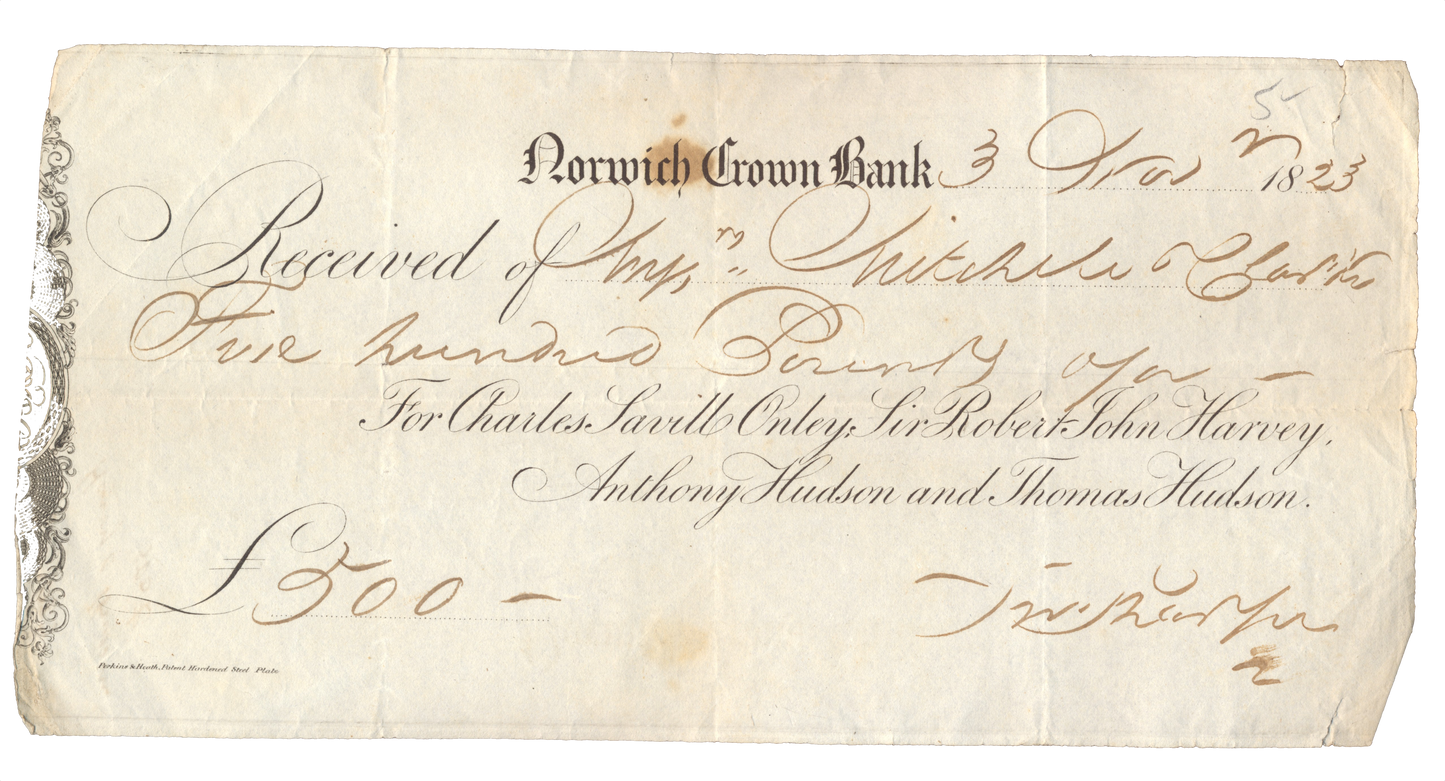 5
Norwich Crown Bank 3 Novr 1823
Received of Messrs Mitchell & Clarke
Five hundred Pounds
For Charles Savill Onley, Sir Robert John Harvey,
Anthony Hudson and Thomas Hudson.
£500 –
Perkins & Heath, Patent Hardened Steel Plate